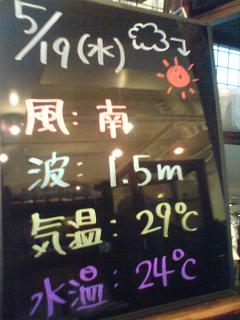 5/19(水)
風: 南
波: 1.5m
気温: 29℃
水温: 24℃